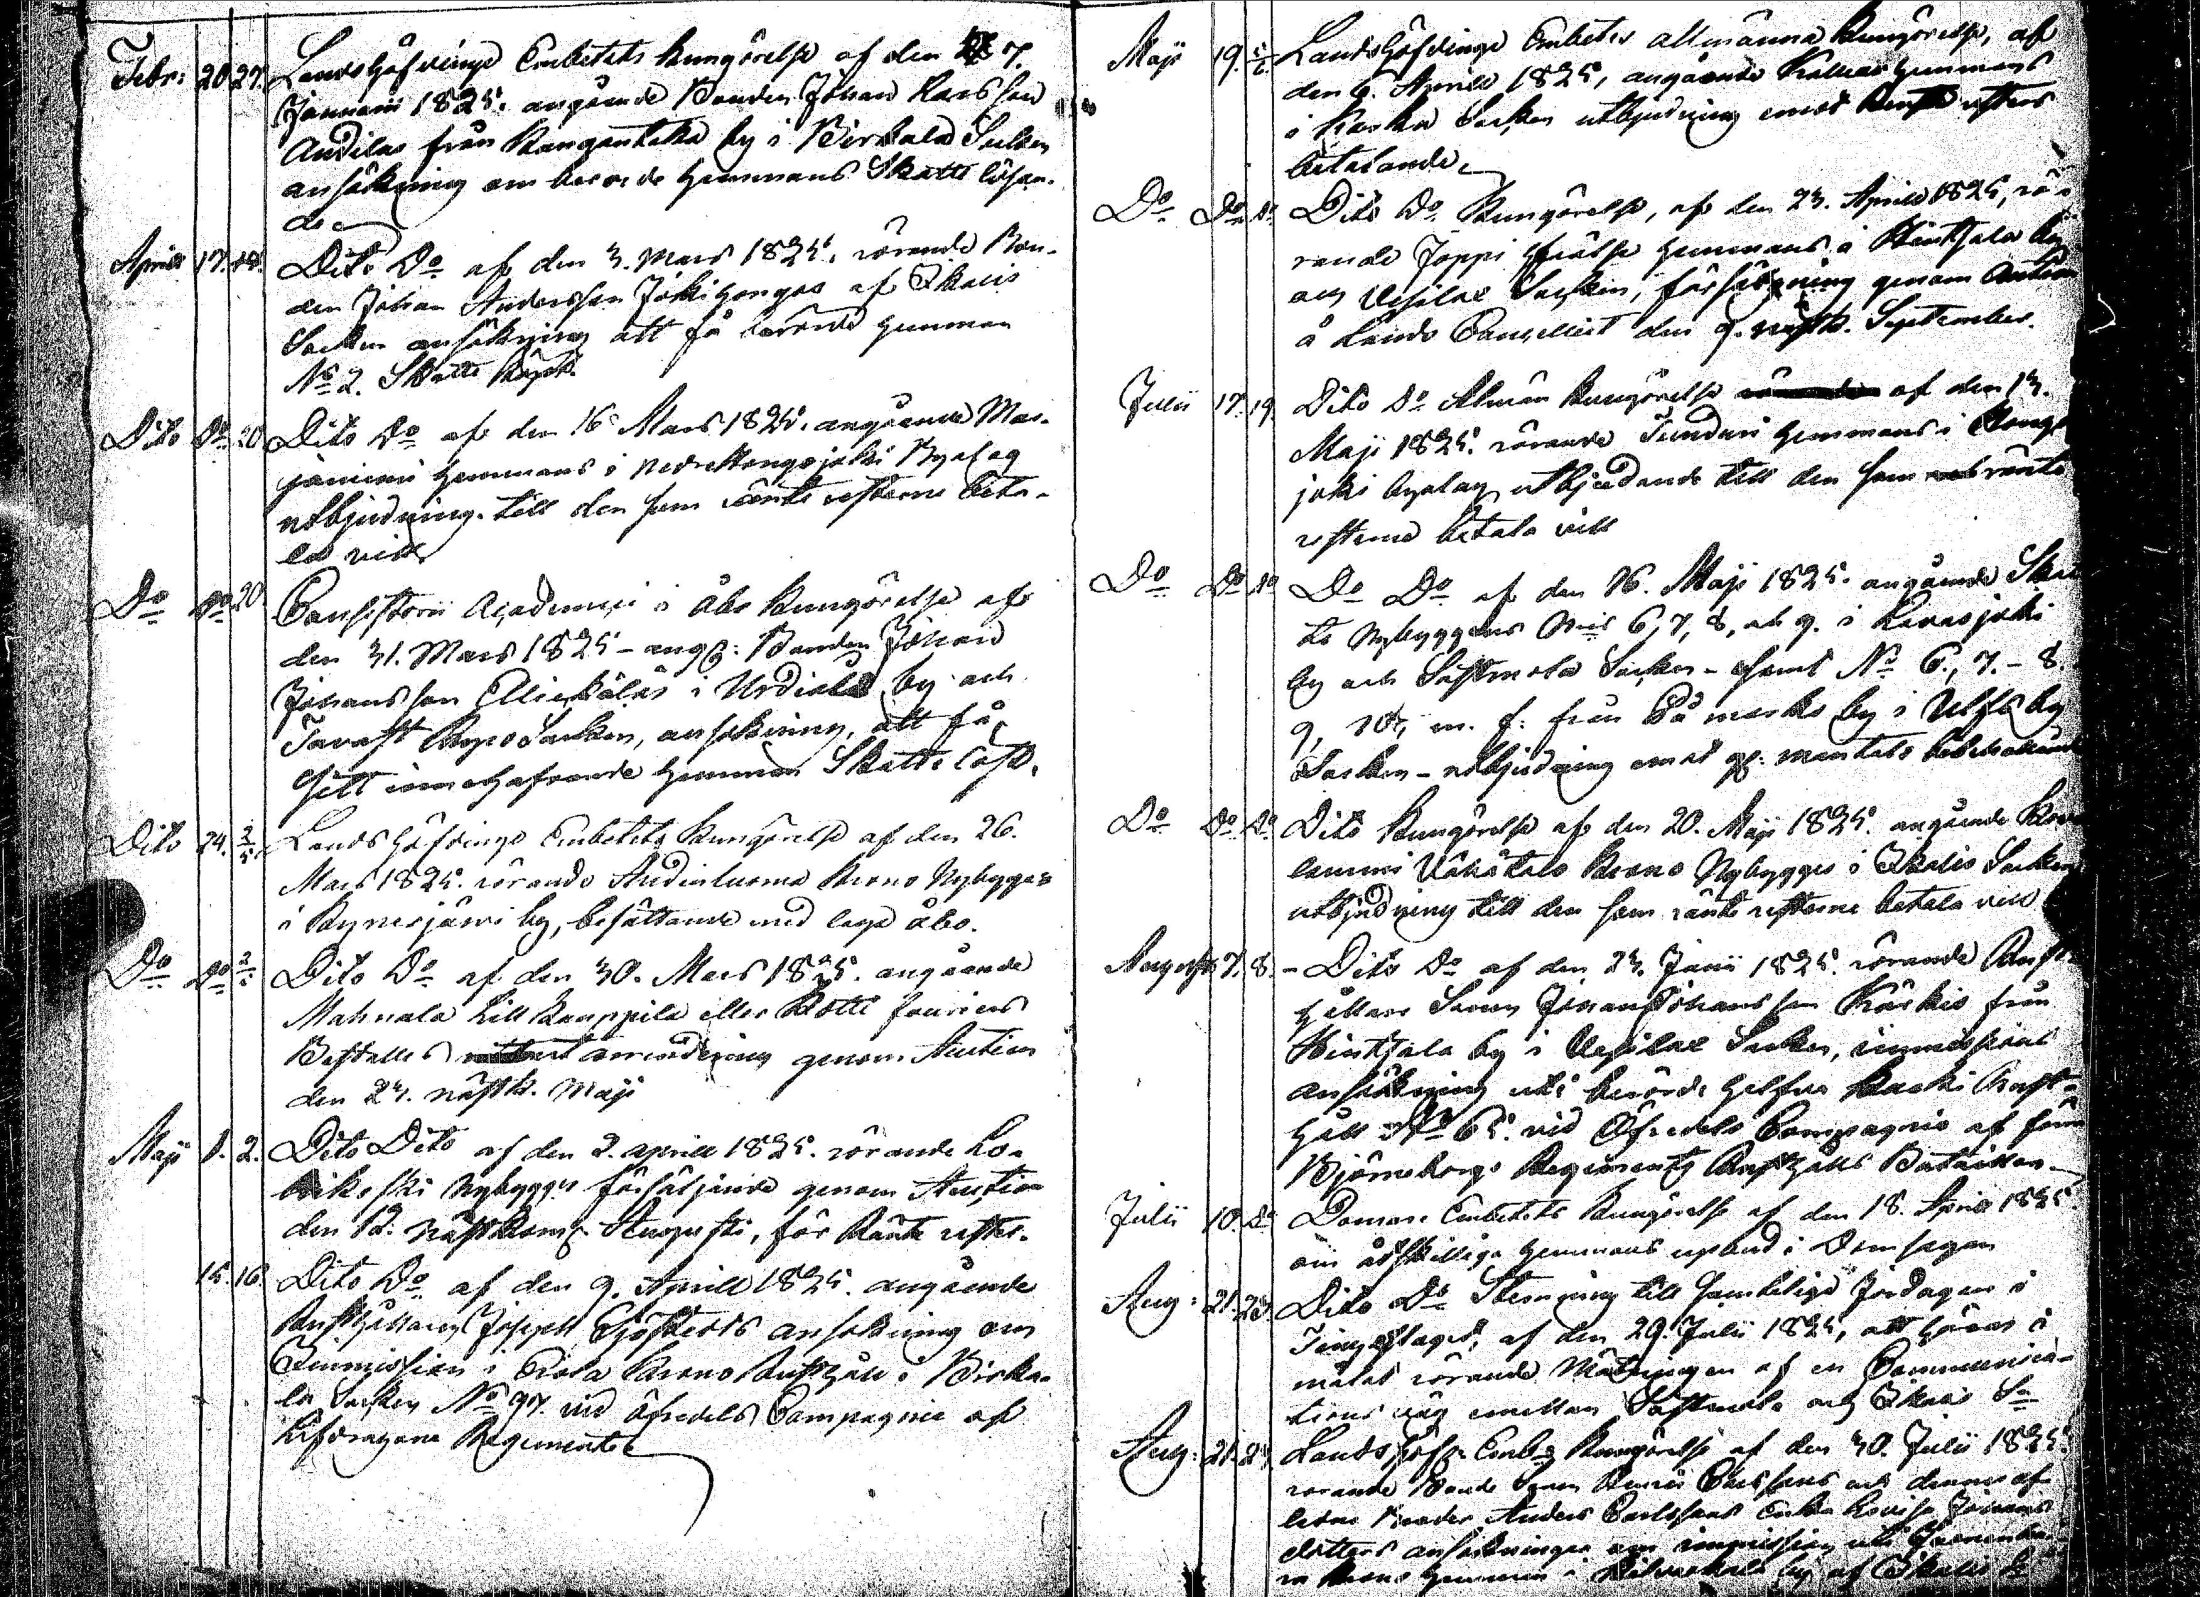 Febr: 20 27. Landshöfdinge Embetets kungörelse af den 7.
Januarii 1825. angående Bonden Johan Larsson
Andilas från Kangantaka by i Birkala Socken
ansökning om berörde hemmans Skatte lösan-
de
Aprill 17. 18. Dito Do af den 3. Mars 1825. rörande Bon-
den Johan Andersson Jokihongas af Ikalis
Socken ansökning att få berörde hemman
No 2. Skatte köpt.
Dito Do 20 Dito Do af den 16 Mars 1825. angående Mar-
jäniemi hemmans i nedre Hongojoki Byalag
utbjudning till den som ränte resterne beta-
la vill
Do Do 20 Consistorii Academici i Åbo kungörelse af
den 31. Mars 1825 - angde: Bonden Johan
Johansson i Urdiala by och
Tavast Kyro Socken, ansökning, att få
sitt innehafvande hemman Skatte löst.
Dito 24. 2/5. Lands höfdinge Embetets kungörelse af den 26.
Mars 1825. rörande Krono Nybygges
i Kyrösjärvi by, besättande med laga åbo.
Do Do 2/5 Dito Do af den 30. Mars 1825. angående
Mahnala Lill Kauppila eller Kotti fouriers
Boställes arrendering genom Auction
den 23. nästk. Maji
Maji 1. 2. Dito Dito af den 2. aprill 1825. rörande Lo-
Nybygges försäljande genom Auction
den 12. nästkomde Augusti, för Ränte rester.
15. 16. Dito Do af den 9. Aprill 1825. angående
Rusthållaren Josefsson ansökning om
Immission i Krono Rusthåll i Birka-
la Socken No 97. vid öfredels Compagnie af
Lifdragone Regimentet
Maji 19. 5/6. Landshöfdinge Embetes allmänna Kungörelse, af
den 6. Aprill 1825, angående hemmans
i Socken utbjudning emot Ränte resters
betalande
Do Do Do Dito Do Kungörelse, af den 23. Aprill 1825, rö-
rande Joppi frälse hemmans i Hintsala by
och Vesilax Socken, försäljning genom Auction
å Lands Cancelliet den 9. nästk. September.
Julii 17. 19 Dito Do Alman kungörelse af den 13.
Maji 1825. rörande Sunduri hemmans i Hongo
joki byalag utbjudande till den som ränte
resterne betala vill
Do Do Do Do Do af den 16. Maji 1825. angående Skat
te Nybyggens Nris 6, 7, 8, och 9. i Lavasjoki
by och Sastmola Socken - samt No 6., 7. - 8.
9, 10, m. f. från Påmarks by i Ulfsby
Socken - utbjudning emot mantals bibehållande
Do Do Do Dito Kungörelse af den 20. Maji 1825. angående
lammi Krono Nybygges i Ikalis Socken
utbjudning till den som ränte resterne betala vill
Augusti 7. 8. - Dito Do af den 23. Junii 1825. rörande Rust-
hållare Sonen Johan Johansson Kärkis från
Hintsala by i Vesilax Socken, immissions
ansökning uti berörde helfva Kaski Rust-
håll No 65. vid Öfredels Compagnie af förra
Björneborgs Regiments Rusthålls Bataillon
Julii 10. Do Domare Embetets kungörelse af den 18. Aprill 1825.
om åtskilliga hemmans upbud i Domsagan
Aug: 21. 23. Dito Do Stemning till samtelige Jordägare i
Tingslaget, af den 29. Julii 1825, att höras i
målet rörande Mätningen af en Communica-
tions väg emellan Sastmola och Ikalis Sn
Aug: 21. 23 Landshöfde Embs Kungörelse af den 30. Julii 1825
rörande Bonde Sonen Carlssons och dennes af-
ledne Broder Anders Carlssons Enka Lovisa Johans
dotters ansökningar om immission uti
Krono hemman i by af Ikalis Sn